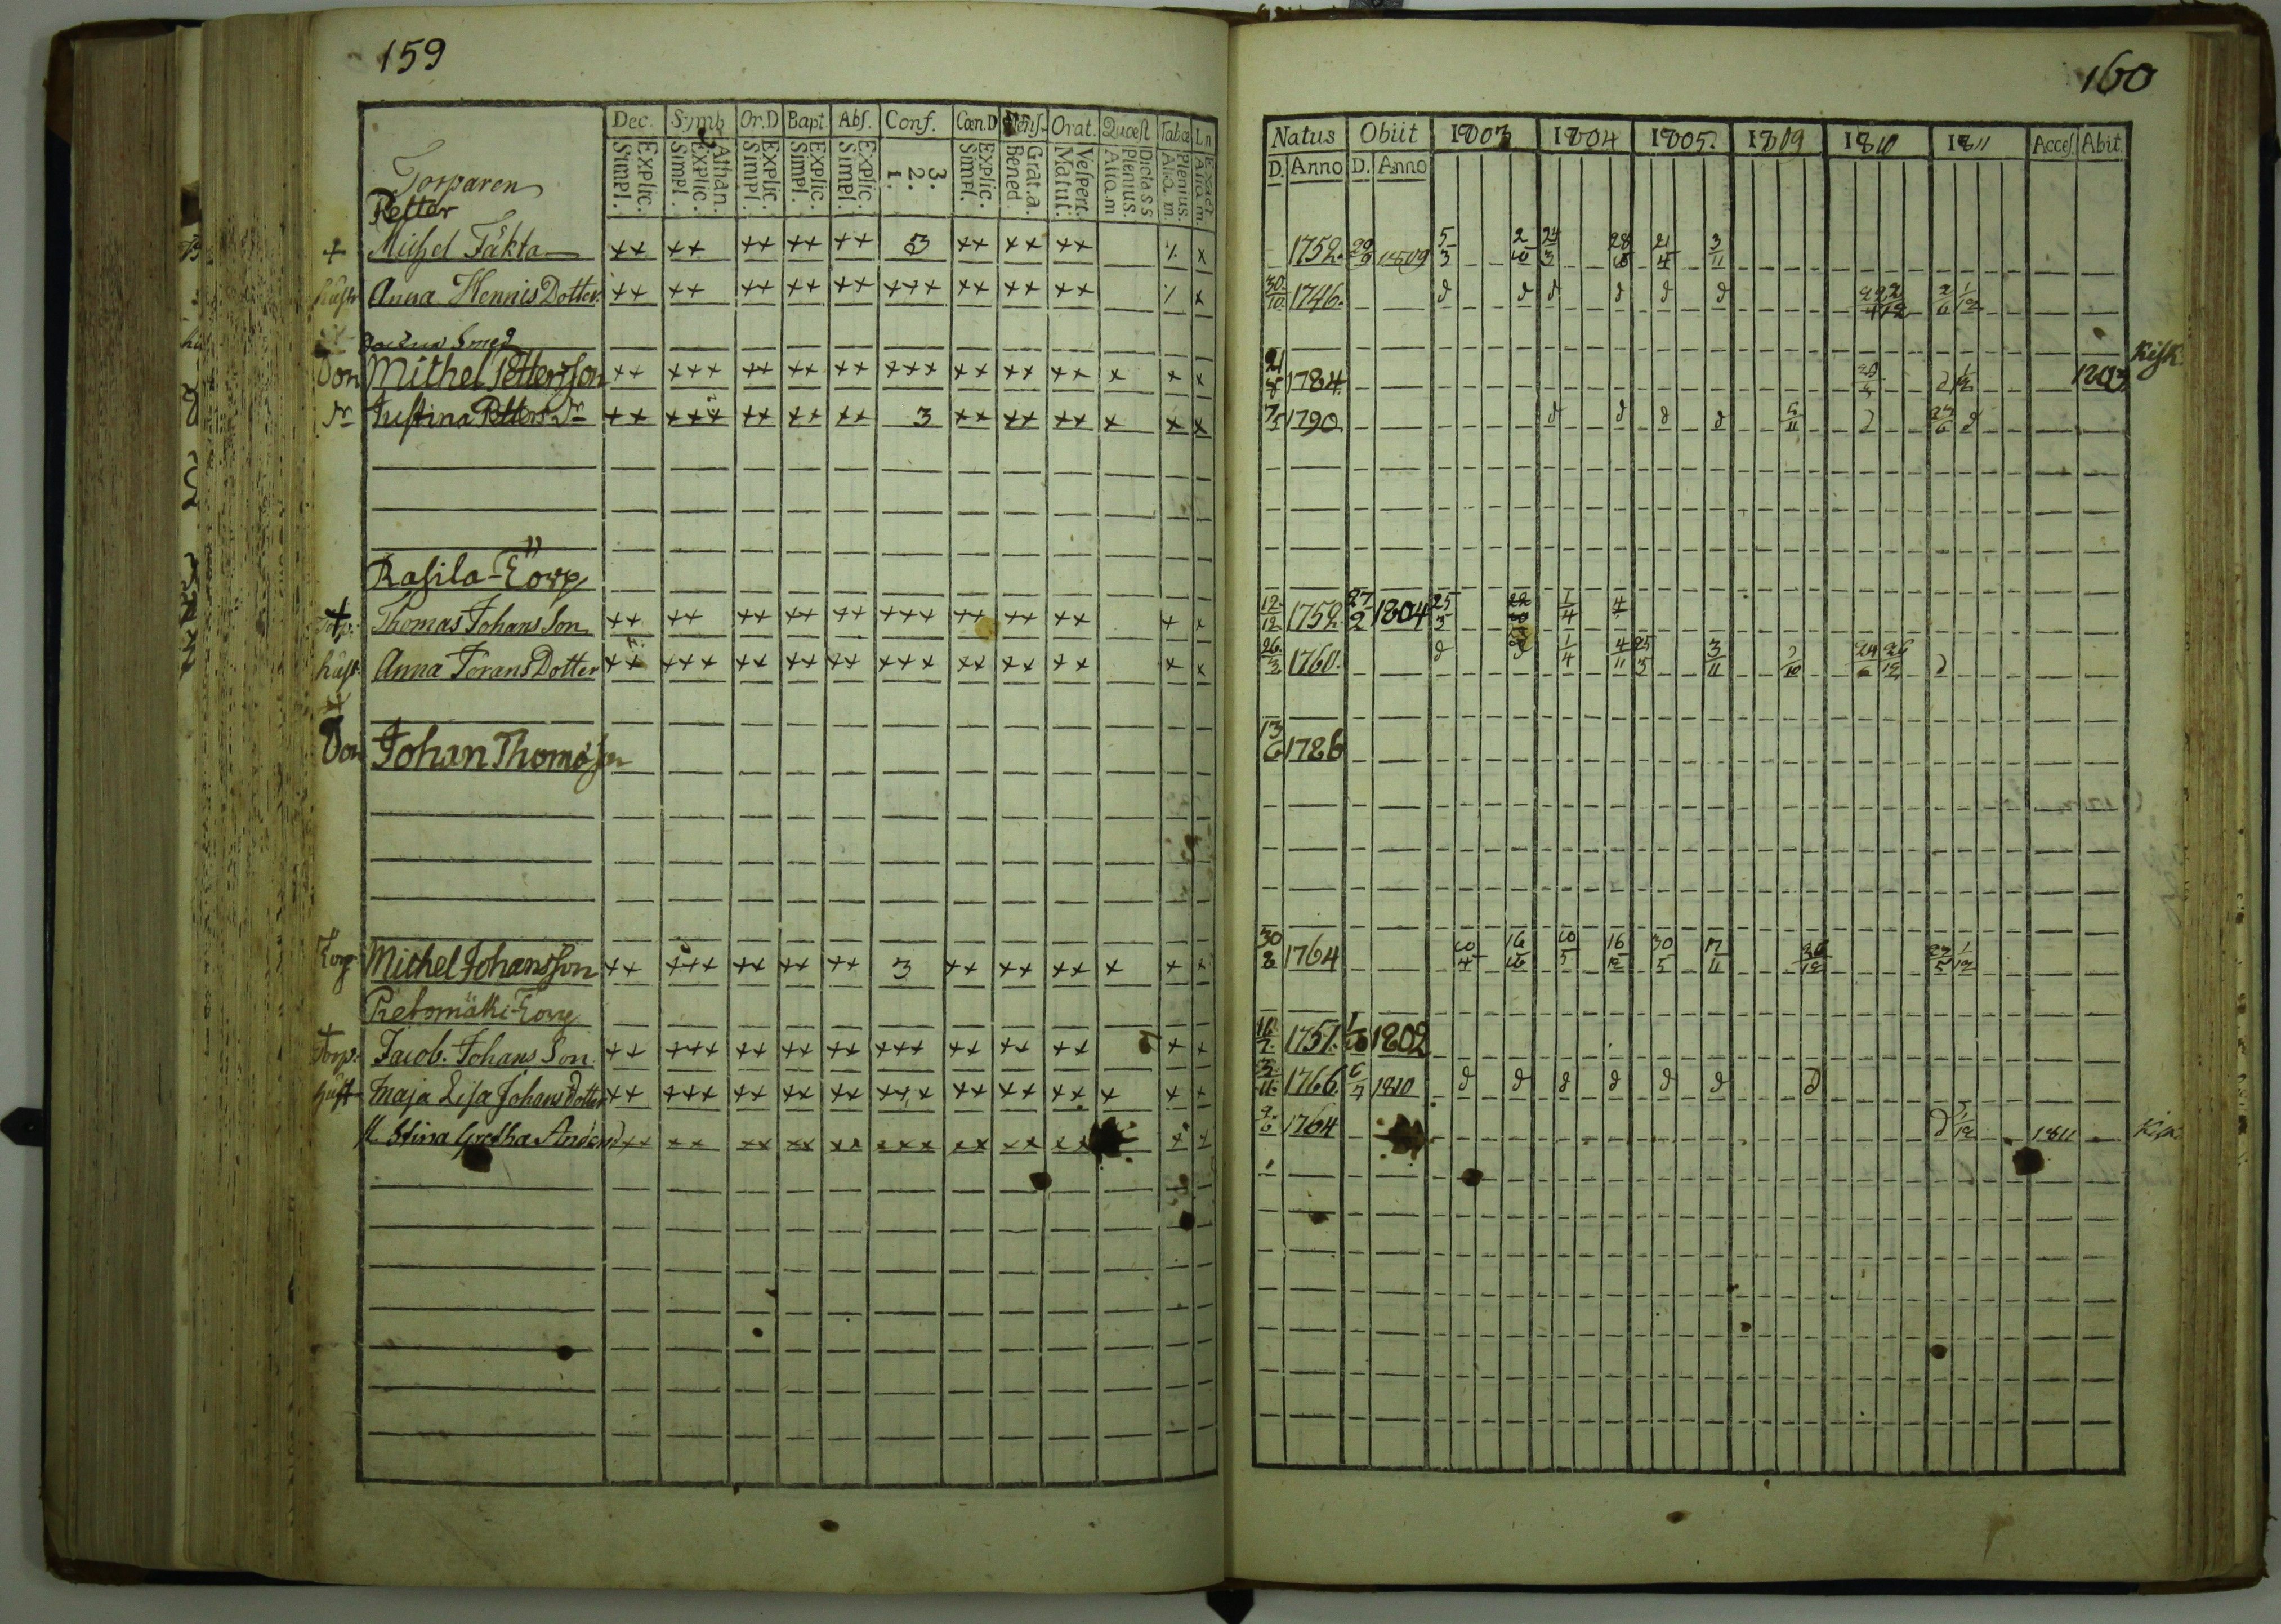 159
Dec. Symb. Or.D Bapt. Abs. Conf. Cœn.D Mens. Orat. Quæst Tabæ Ln
Explic. Simpl. Athan. Explic. Simpl. Explic. Simpl. Explic. Simpl. Explic. Simpl. 3. 2. 1. Explic. Simpl. Grat.a. Bened. Vespert. Matut. Dicta s s Plenius. Aliq.m Plenius. Aliq.m. Exact Aliq.m.
Torparen
Petter
+ Michel Täkta ×× ×× ×× ×× ×× 3 ×× ×× ×× ٪ ×
hust Anna Hennis Dotter ×× ×× ×× ×× ×× ××× ×× ×× ×× ٪ ×
Son Michel Pettersson ×× ××× ×× ×× ×× ××× ×× ×× ×× × × ×
Dr Justina Petters Dr ×× ××× ×× ×× ×× 3 ×× ×× ×× × × ×
Rasila-Torp
+ Torp. Thomas Johans Son ×× ×× ×× ×× ×× ××× ×× ×× ×× × ×
hust Anna Jorans Dotter ×× ××× ×× ×× ×× ××× ×× ×× ×× × ×
Son Johan Thomasson
Torp Michel Johansson ×× ××× ×× ×× ×× 3 ×× ×× ×× × × ×
Rebomäki-Torp
+ Torp. Jacob. Johans Son ×× ××× ×× ×× ×× ××× ×× ×× ×× × ×
hust Maja Lisa Johans Dotter ×× ××× ×× ×× ×× ××× ×× ×× ×× × × ×
Stina Gretha Andersd ×× ×× ×× ×× ×× ××× ×× ×× ×× × ×
160
Natus Obiit 1803 1804 1805. 1809 1810 1811 Access. Abit.
D. Anno D. Anno
1752. 29/6 1809 5/3 2/10 24/3 28/10 21/4 3/11
30/10 1746. d d d d d d 2/6 1/12
21/8 1784. 1803 Kisk
7/5 1790. d d d d 5/11 d 24/6 d
12/12 1752. 27/2 1804 25/3 1/4 4
26/3 1760. d d 1/4 4/11 25/3 3/11 2/10 24/6 26/12 d
13/6 1786
30/8 1764 10/4 16/10 10/5 16/12 30/5 17/11 26/12 27/5 1/12
16/7 1751. 1/10 1802
3/11 1766. 6/7 1810 d d d d d d d
2/6 1764 d 1/12 1811 Kisk